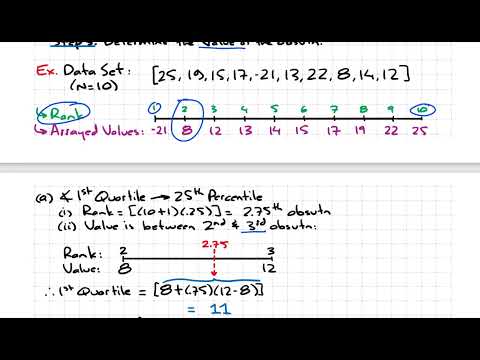 Step 2: Determine the Value of the obsvtn.
Ex. Data Set: [25, 19, 15, 17, -21, 13, 22, 8, 14, 12]
(N=10)
↳ Rank: 1 2 3 4 5 6 7 8 9 10
↳ Arrayed Values: -21 8 12 13 14 15 17 19 22 25
(a) ∡ 1st Quartile → 25th Percentile
(i) Rank = [(10+1)(.25)] = 2.75th obsvtn
(ii) Value is between 2nd & 3rd obsvtn:
2.75
Rank: 2 3
Value: 8 12
∴ 1st Quartile = [8+(.75)(12-8)]
= 11